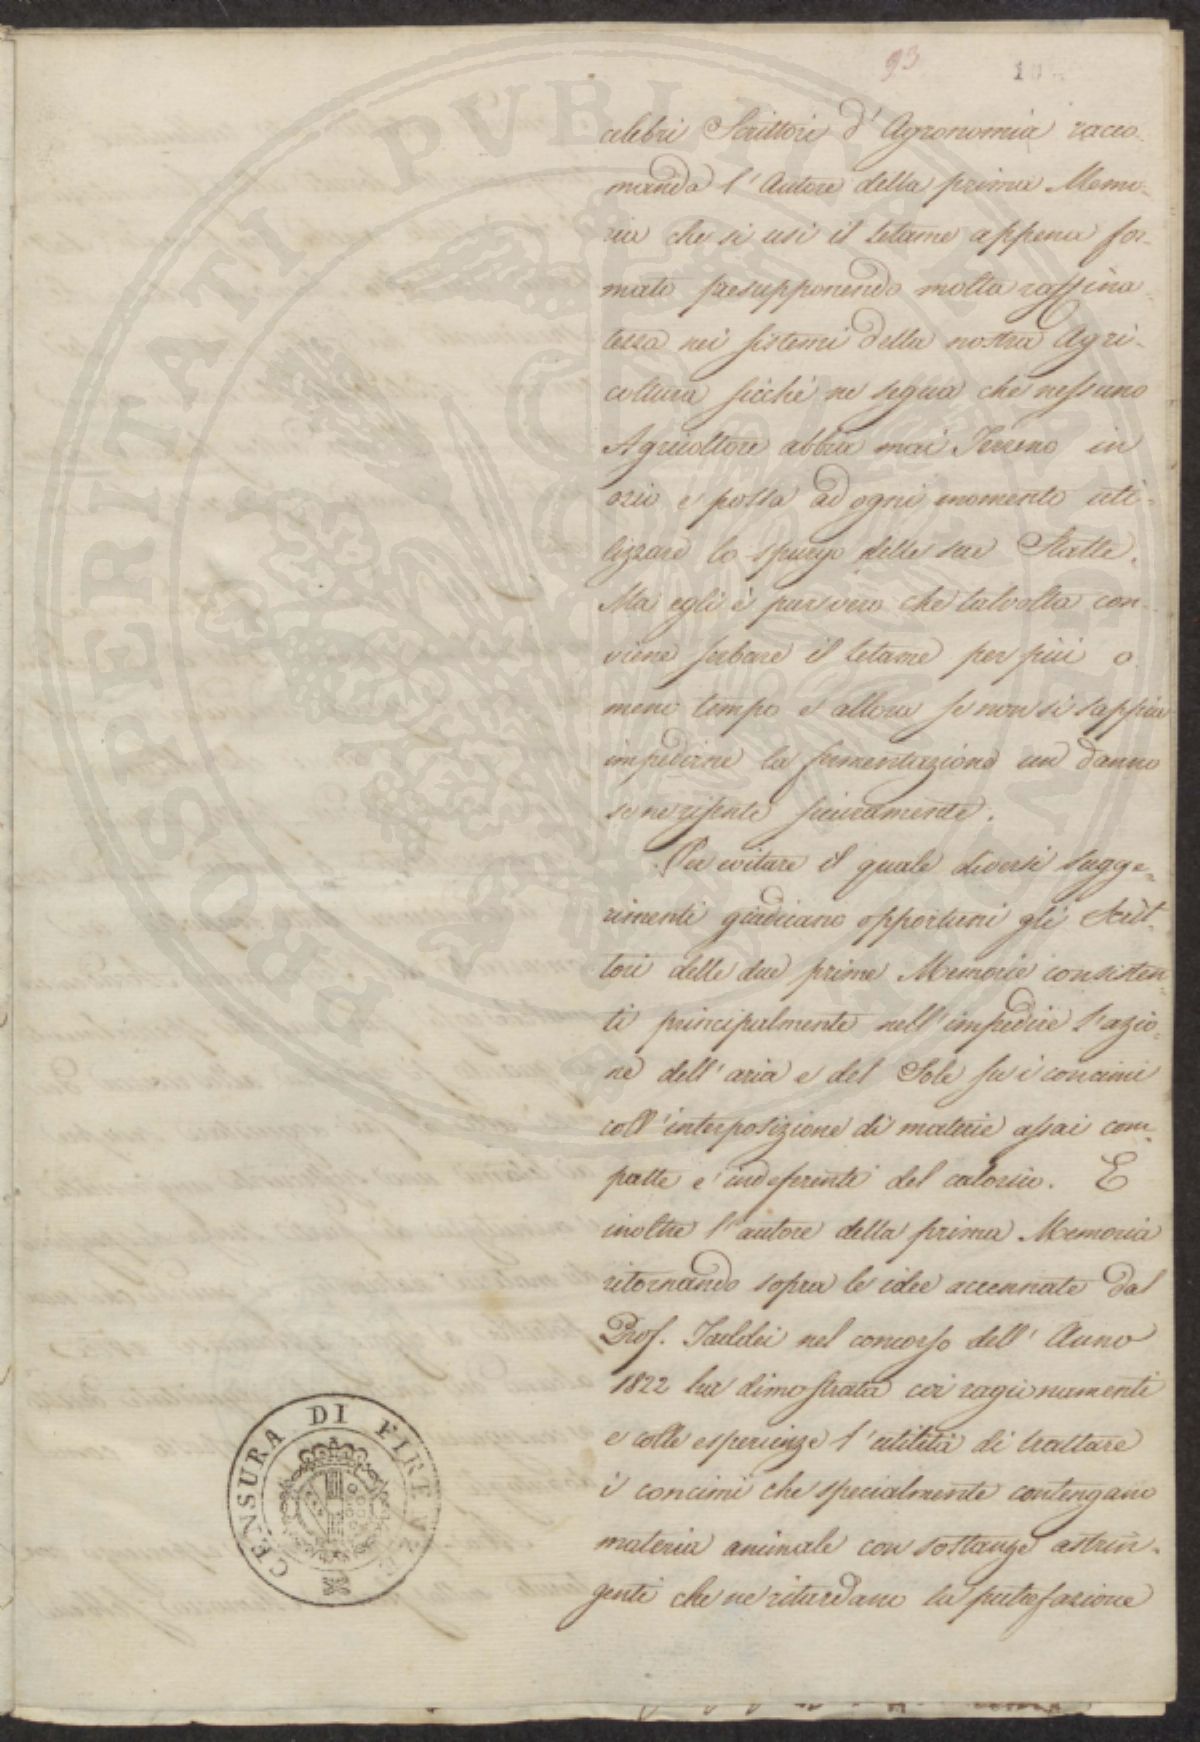 93
celebri Scrittori d' Agronomia racco-
manda l' Autore della prima Memo-
ria che si usi il letame appena for-
mato presupponendo molta raffina-
tezza nei sistemi della nostra Agri-
coltura sicché ne segua che nessuno
Agricoltore abbia mai Terreno in
ozio e possa ad ogni momento uti-
lizzare lo spurgo delle sue Stalle.
Ma egli è pur vero che talvolta con-
viene serbare il letame per più o
meno tempo e allora se non si sappia
impedirne la fermentazione un danno
se ne risente sicuramente.
Per evitare il quale diversi sugge-
rimenti giudicano opportuni gli Scrit-
tori delle due prime Memorie consisten-
ti principalmente nell' impedire l' azio-
ne dell' aria e del Sole su i concimi
coll' interposizione di materie assai com-
patte e indeferenti del calorico. E
inoltre l' autore della prima Memoria
ritornando sopra le idee accennate dal
Prof. Taddei nel concorso dell' Anno
1822 ha dimostrata coi ragionamenti
e colle esperienze l' utilità di trattare
i concimi che specialmente contengano
materia animale con sostanze astrin-
genti che ne ritardano la putrefazione
CENSURA DI FIRENZE
PROSPERITATI PUBLICAE AUGENDAE